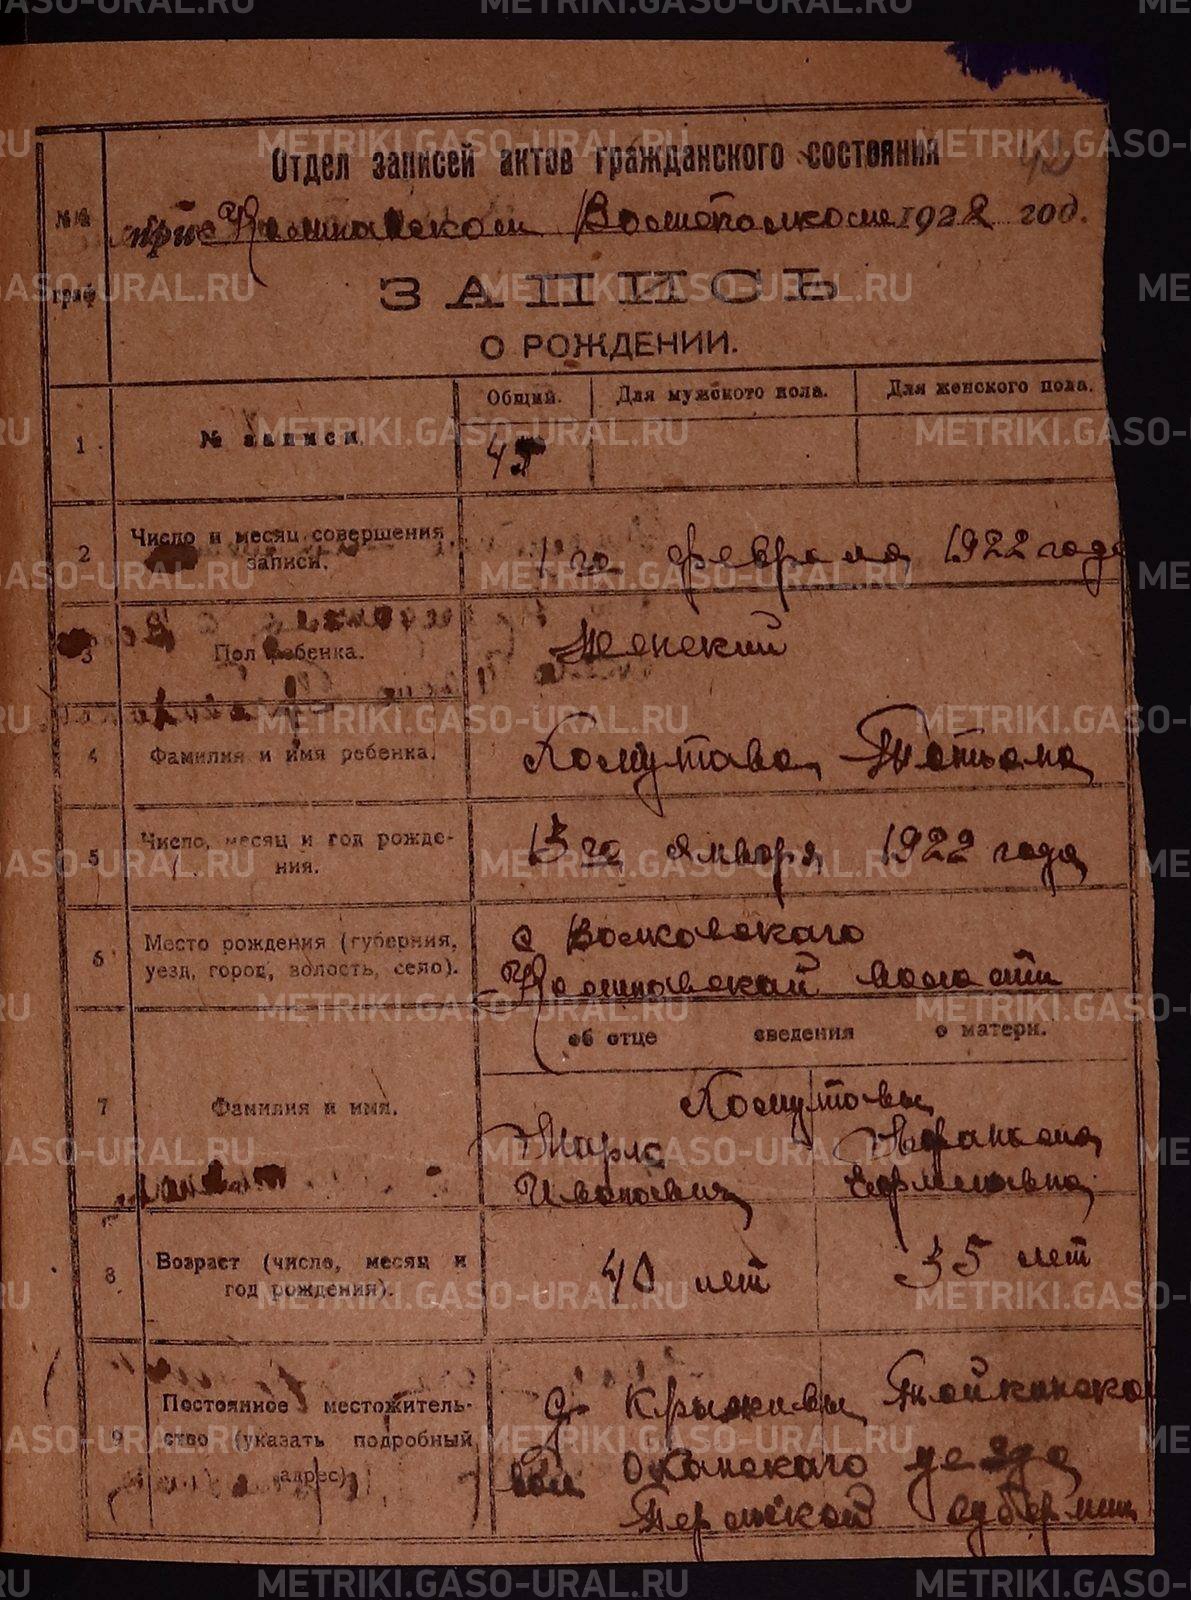 Отдел записей актов гражданского состояния
№№ граф
при Волисполкоме 1922 год.
ЗАПИСЬ
О РОЖДЕНИИ.
Общий. Для мужского пола. Для женского пола.
1 № записи.
2 Число и месяц совершения записи. 1 го февраля 1922 года
3 Пол ребенка. Женский
4 Фамилия и имя ребенка. Хомутова Татьяна
5 Число, месяц и год рождения. 15 го января 1922 года
6 Место рождения (губерния, уезд, город, волость, село). с Волковского
волости
об отце сведения о матери.
7 Фамилия и имя. Хомутовы
Марк
Иванович
8 Возраст (число, месяц и год рождения). 40 лет 35 лет
9 Постоянное местожительство (указать подробный адрес) д.
вол Оханского уезда
Пермской губернии
METRIKI.GASO-URAL.RU